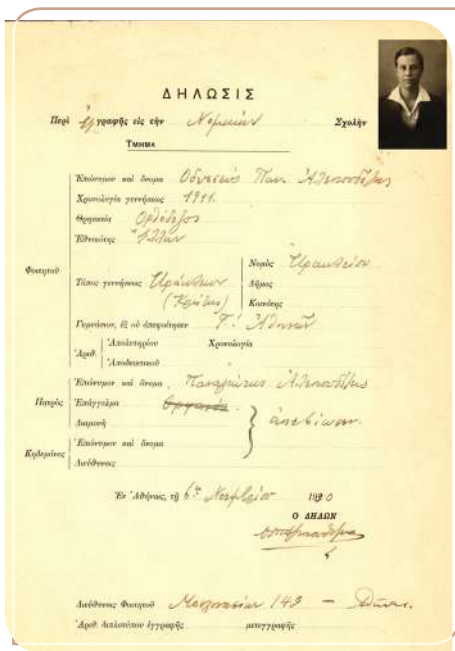 ΔΗΛΩΣΙΣ
Περὶ ἐγγραφῆς εἰς τὴν Νομικὴν Σχολὴν
ΤΜΗΜΑ
Ἐπώνυμον καὶ ὄνομα Ὀδυσσεὺς Παν. Ἀλεπουδέλης
Χρονολογία γεννήσεως 1911.
Θρησκεία Ὀρθόδοξος
Ἐθνικότης Ἕλλην
Φοιτητοῦ
Τόπος γεννήσεως Ἡράκλειον (Κρήτης)
Νομὸς Ἡρακλείου
Δῆμος
Κοινότης
Γυμνάσιον, ἐξ οὗ ἀπεφοίτησεν Γ'. Ἀθηνῶν
Ἀριθ. Ἀπολυτηρίου Χρονολογία
Ἀποδεικτικοῦ
Πατρὸς
Ἐπώνυμον καὶ ὄνομα Παναγιώτης Ἀλεπουδέλης
Ἐπάγγελμα
Διαμονὴ ἀπεβίωσεν.
Κηδεμόνος
Ἐπώνυμον καὶ ὄνομα
Διεύθυνσις
Ἐν Ἀθήναις, τῇ 6ῃ Νοεμβρίου 1930
Ο ΔΗΛΩΝ
Διεύθυνσις Φοιτητοῦ 148 — Ἀθῆναι.
Ἀριθ. διπλοτύπου ἐγγραφῆς μετεγγραφῆς